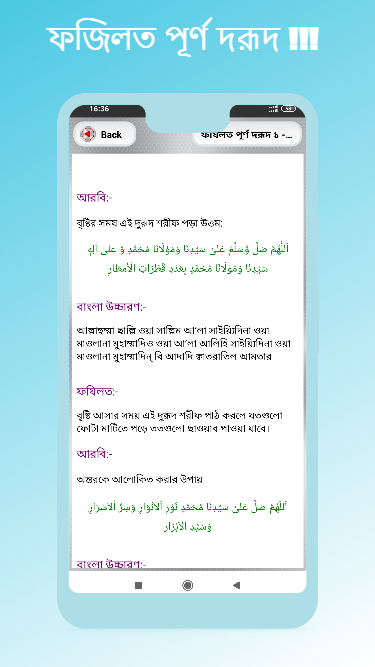 ফজিলত পূর্ণ দরূদ !!!
16:36
Back
ফযিলত পূর্ণ দরূদ ১ -...
আরবি:-
বৃষ্টির সময় এই দুরূদ শরীফ পড়া উত্তম:
اَللّٰهُمَّ صَلِّ وَسَلِّمْ عَلىٰ سَيِّدِنَا وَمَوْلَانَا مُحَمَّدٍ وَّ عَلى اٰلِهٖ
سَيِّدِنَا وَمَولَانَا مُحَمَّدٍ بِعَدَدِ قَطْرَاتِ الْأَمطَارِ
বাংলা উচ্চারণ:-
আল্লাহুম্মা ছাল্লি ওয়া সাল্লিম আ'লা সাইয়্যিদিনা ওয়া
মাওলানা মুহাম্মাদিও ওয়া আ'লা আলিহি সাইয়্যিদিনা ওয়া
মাওলানা মুহাম্মাদিন্ বি আদাদি ক্বাতরাতিল আমতার
ফযিলত:-
বৃষ্টি আসার সময় এই দুরূদ শরীফ পাঠ করলে যতগুলো
ফোটা মাটিতে পড়ে ততগুলো ছাওয়াব পাওয়া যাবে।
আরবি:-
অন্তরকে আলোকিত করার উপায়
اَللّٰهُمَّ صَلِّ عَلىٰ سَيِّدِنَا مُحَمَّدٍ نُوْرِ اْلاَنْوَارِ وَسِرِّ اْلاَسْرَارِ
وَسَيِّدِ الْاَبْرَارِ
বাংলা উচ্চারণ:-